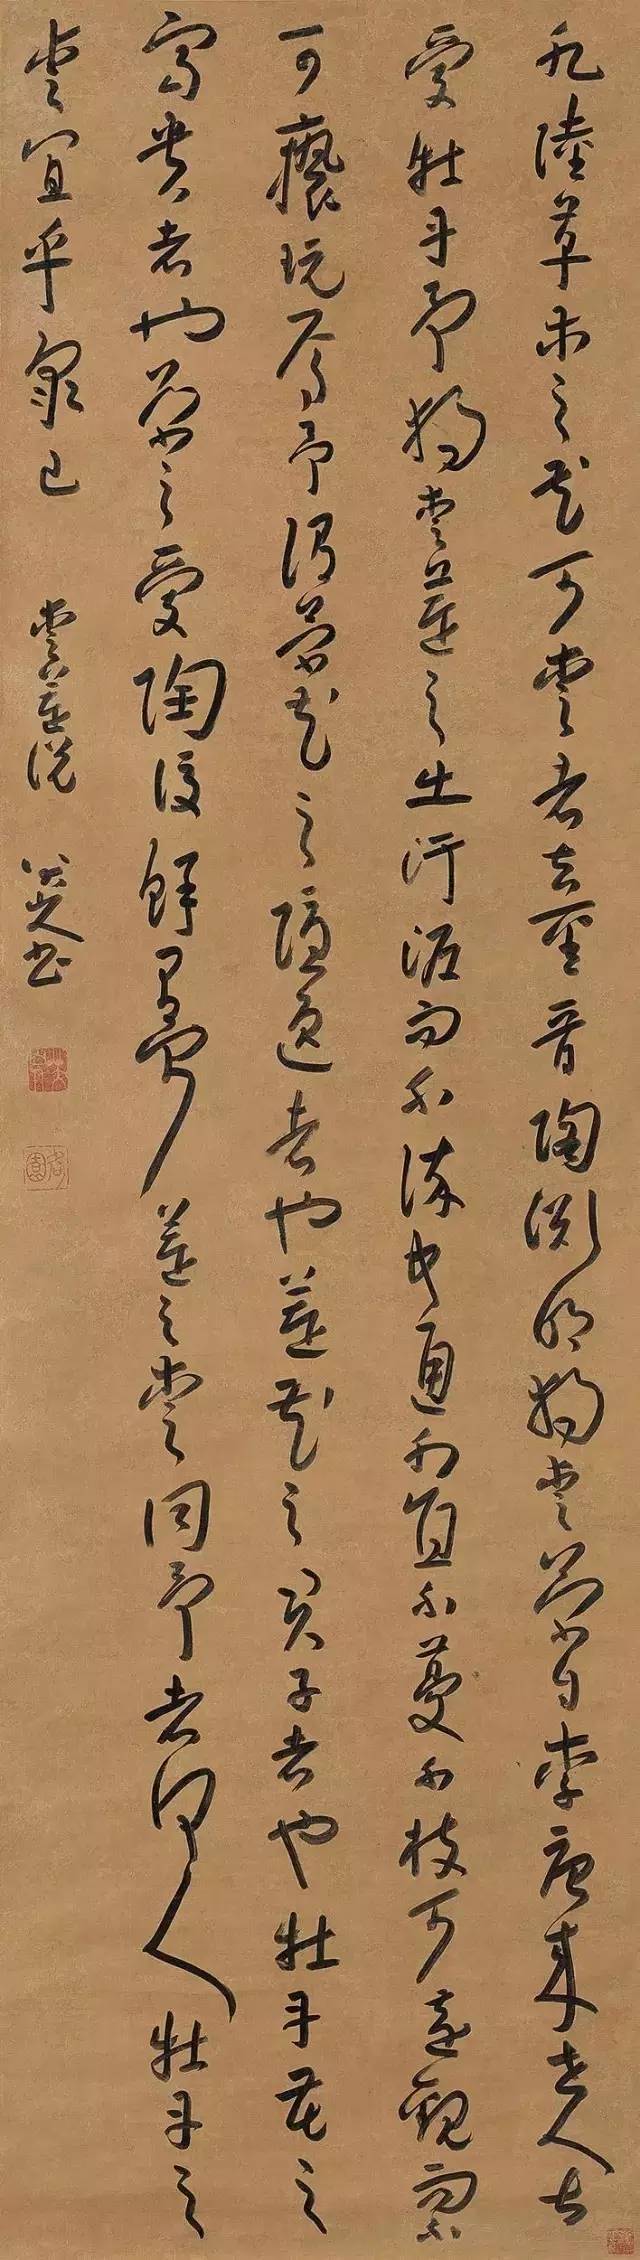 水陸草木之花可愛者甚蕃晉陶淵明獨愛菊自李唐來世人甚
愛牡丹予獨愛蓮之出汙泥而不染中通外直不蔓不枝可遠觀而不
可褻玩焉予謂菊花之隱逸者也蓮花之君子者也牡丹花之
富貴者也菊之愛陶後鮮有聞蓮之愛同予者何人牡丹之
愛宜乎衆已 愛蓮說 八大山人書